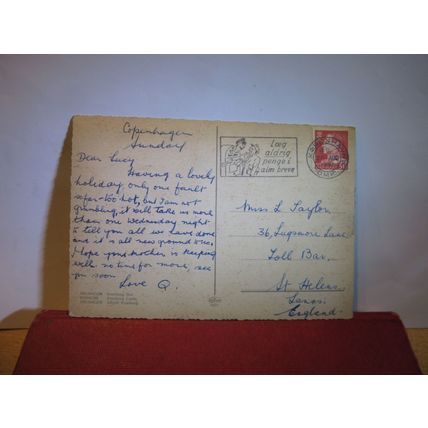 Copenhagen
Sunday
Dear Lucy
Having a lovely
holiday only one fault
so far too hot, but I am not
grumbling, it will take us more
than one Wednesday night
to tell you all we have done
and it is all new ground one.
Hope your mother is keeping
well. so time for more, see
you soon
Love Q.
Læg
aldrig
penge i
alm breve
Miss L Taylor
36, Lugsmore Lane
Toll Bar.
St Helens
Lancs.
England.